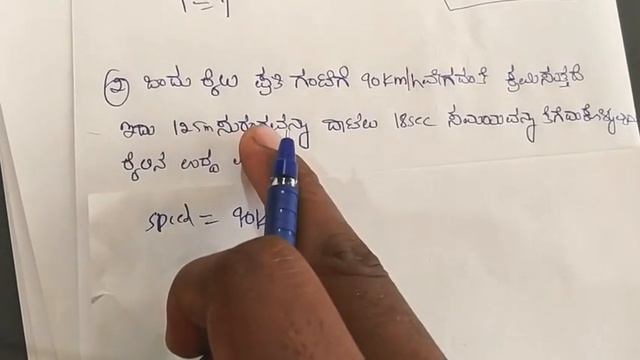 ② ಒಂದು ರೈಲು ಪ್ರತಿ ಗಂಟೆಗೆ 90km/h ವೇಗದಂತೆ ಕ್ರಮಿಸುತ್ತದೆ
ಇದು 125m ಸುರಂಗವನ್ನು ದಾಟಲು 18sec ಸಮಯವನ್ನು
ರೈಲಿನ ಉದ್ದ
speed = 90k